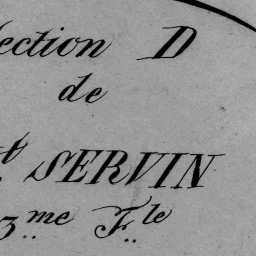 Section D
de
St SERVIN
3.me F.le